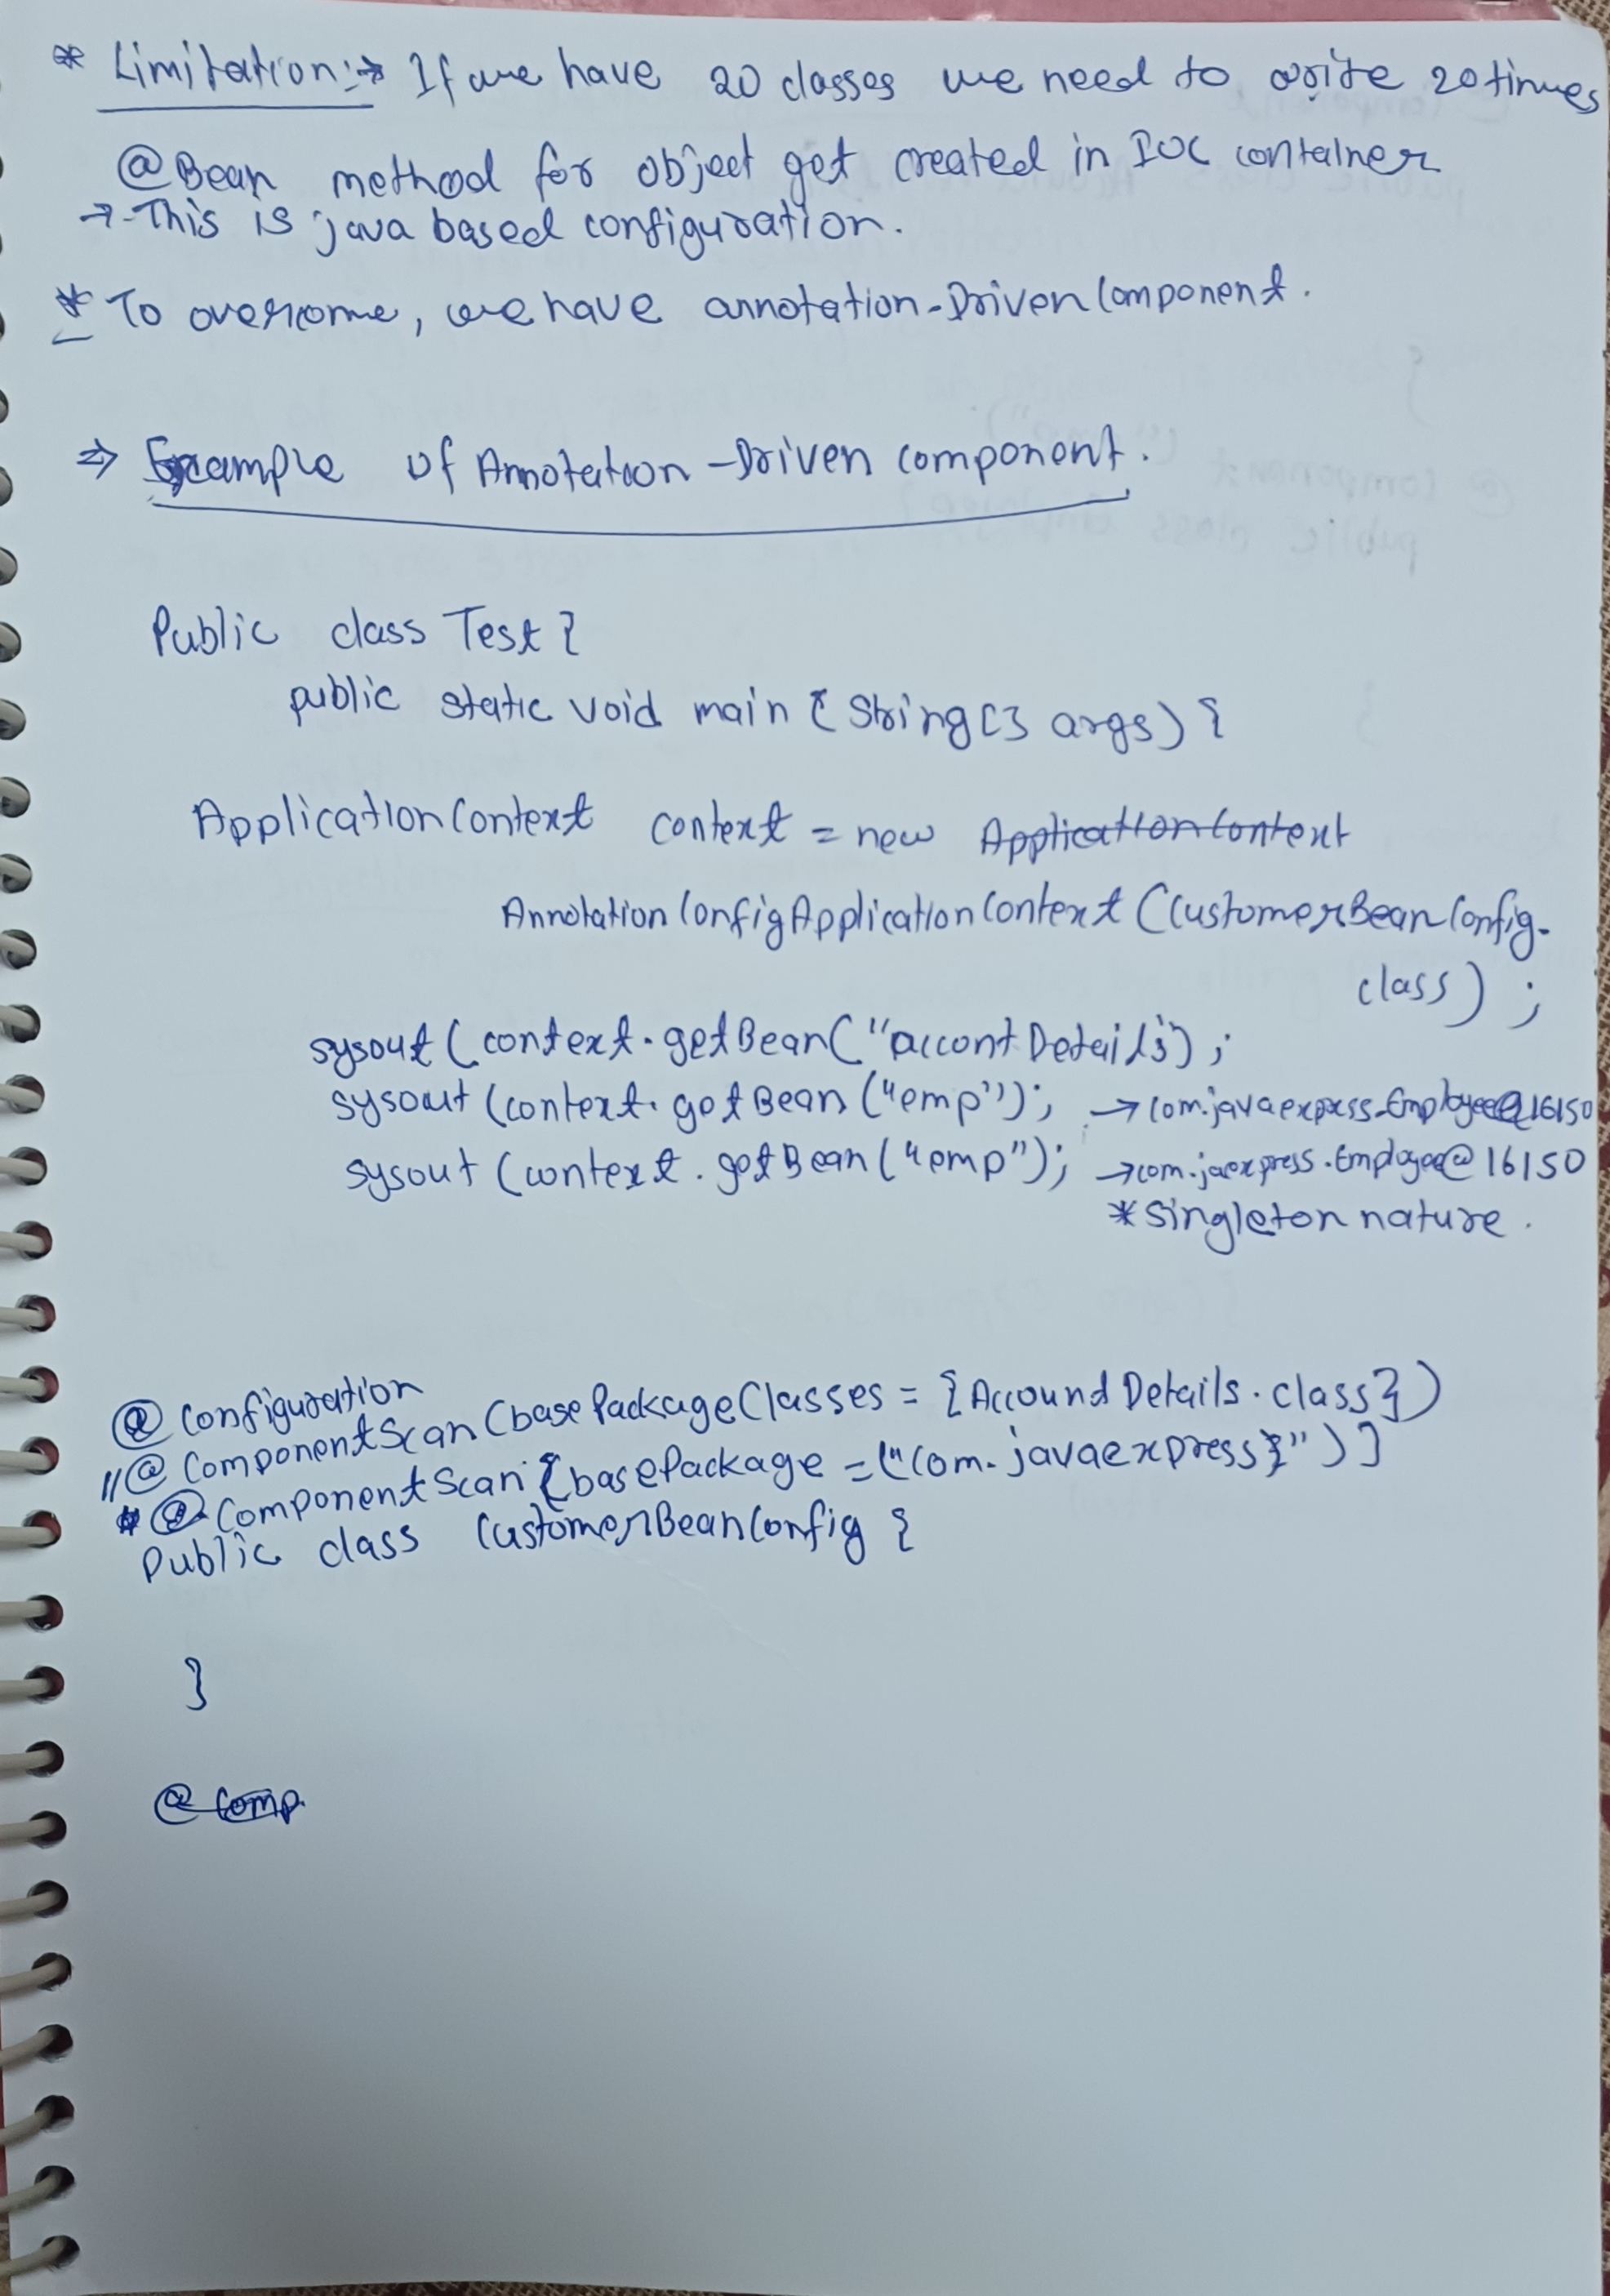 * Limitation :→ If we have 20 classes we need to write 20 times
@Bean method for object get created in IOC container
→ This is java based configuration.
* To overcome, we have annotation-Driven Component.
⇒ Example of Annotation-Driven component.
Public class Test {
public static void main (String[] args) {
ApplicationContext context = new ApplicationContext
AnnotationConfigApplicationContext (CustomerBeanConfig.
class) ;
sysout (context.getBean("accontDetails");
sysout (context.getBean("emp"); → com.javaexpress.Employee@16150
sysout (context.getBean("emp"); → com.jaexpress.Employee@16150
* Singleton nature.
@Configuration
//@ComponentScan (basePackageClasses = {AccoundDetails.class})
* @ComponentScan {basePackage = ("com.javaexpress}")]
Public class CustomerBeanConfig {
}
@Comp